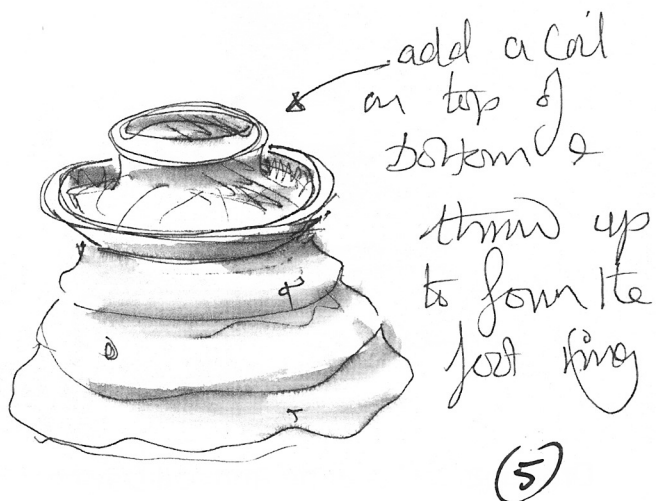 add a coil
on top of
bottom &
throw up
to form the
foot ring
5